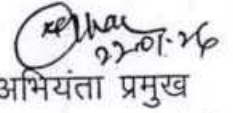 22-01-26
अभियंता प्रमुख